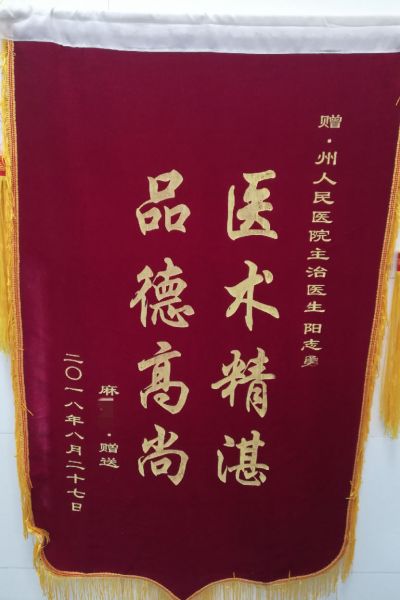 赠·州人民医院主治医生 阳志勇
医术精湛
品德高尚
麻 ·赠送
二〇一八年八月二十七日